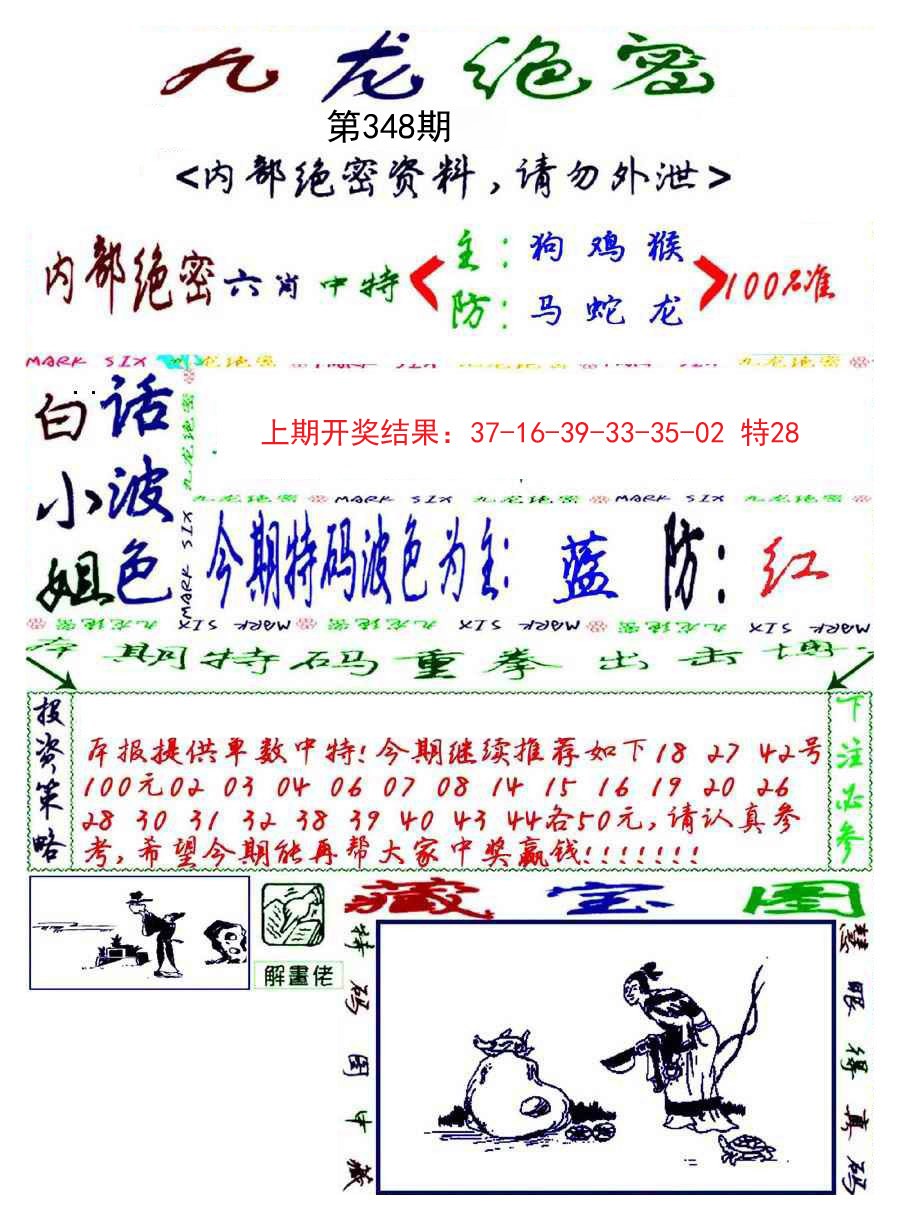 九龙绝密
第348期
<内部绝密资料,请勿外泄>
内部绝密六肖中特
主:狗鸡猴
防:马蛇龙
100%准
MARK SIX 九龙绝密
白话小姐波色
上期开奖结果：37-16-39-33-35-02 特28
九龙绝密 MARK SIX 九龙绝密 MARK SIX 九龙绝密
今期特码波色为主:蓝 防:红
九龙绝密 MARK SIX 九龙绝密 MARK SIX 九龙绝密 MARK SIX
期特码重拳出击
投资策略
本报提供单数中特!今期继续推荐如下18 27 42号
100元02 03 04 06 07 08 14 15 16 19 20 26
28 30 31 32 38 39 40 43 44各50元,请认真参
考,希望今期能再帮大家中奖赢钱!!!!!!!
下注必参
解畫佬
藏宝图
特码图中藏
慧眼得真码